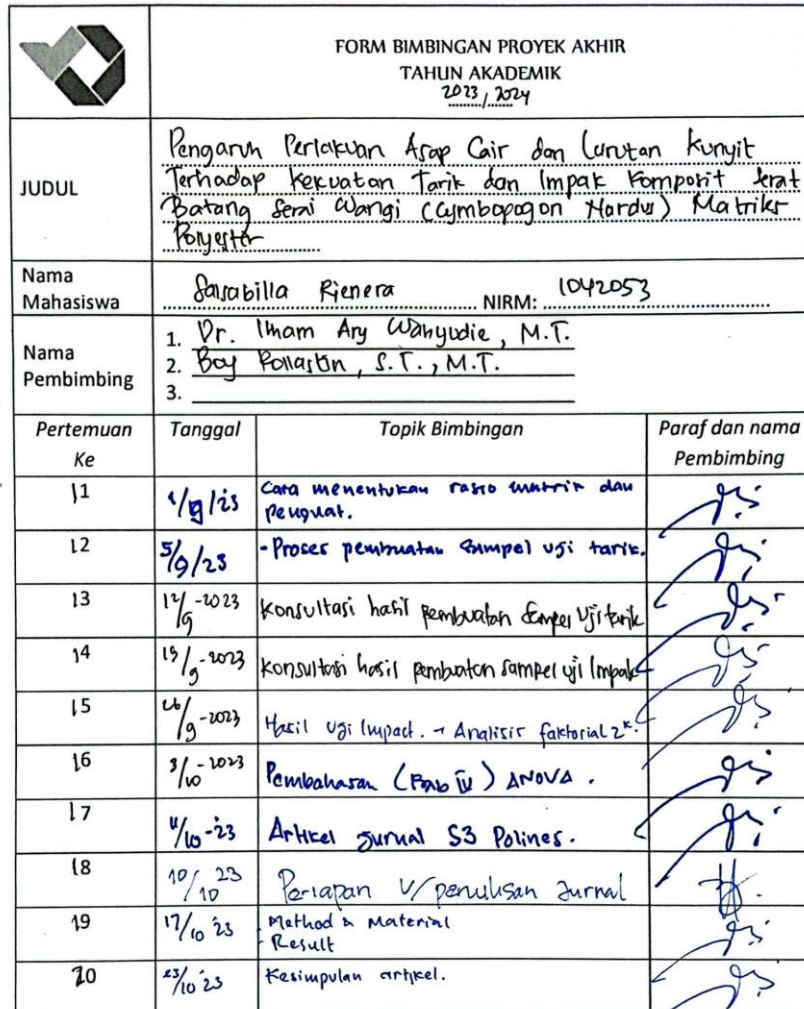 FORM BIMBINGAN PROYEK AKHIR
TAHUN AKADEMIK
2023 / 2024
JUDUL
Pengaruh Perlakuan Asap Cair dan Larutan Kunyit
Terhadap Kekuatan Tarik dan Impak Komposit Serat
Batang Serai Wangi (Cymbopogon Nardus) Matriks
Polyester
Nama Mahasiswa
Salsabilla Rienera NIRM: 1042053
Nama Pembimbing
1. Dr. Ilham Ary Wahyudie, M.T.
2. Boy Rollastin, S.T., M.T.
3.
Pertemuan Ke Tanggal Topik Bimbingan Paraf dan nama Pembimbing
11 /9/23 Cara menentukan rasio matrik dan
penguat.
12 5/9/23 - Proses pembuatan sampel uji tarik.
13 12/9-2023 Konsultasi hasil pembuatan sampel uji tarik
14 19/9-2023 Konsultasi hasil pembuatan sampel uji Impak
15 26/9-2023 Hasil uji Impact. → Analisis faktorial 2ᵏ.
16 3/10-2023 Pembahasan (Bab IV) ANOVA.
17 /10-23 Artikel Jurnal S3 Polines.
18 10/10 23 Persiapan u/ penulisan Jurnal
19 17/10 23 - Method & Material
- Result
20 23/10 23 Kesimpulan artikel.